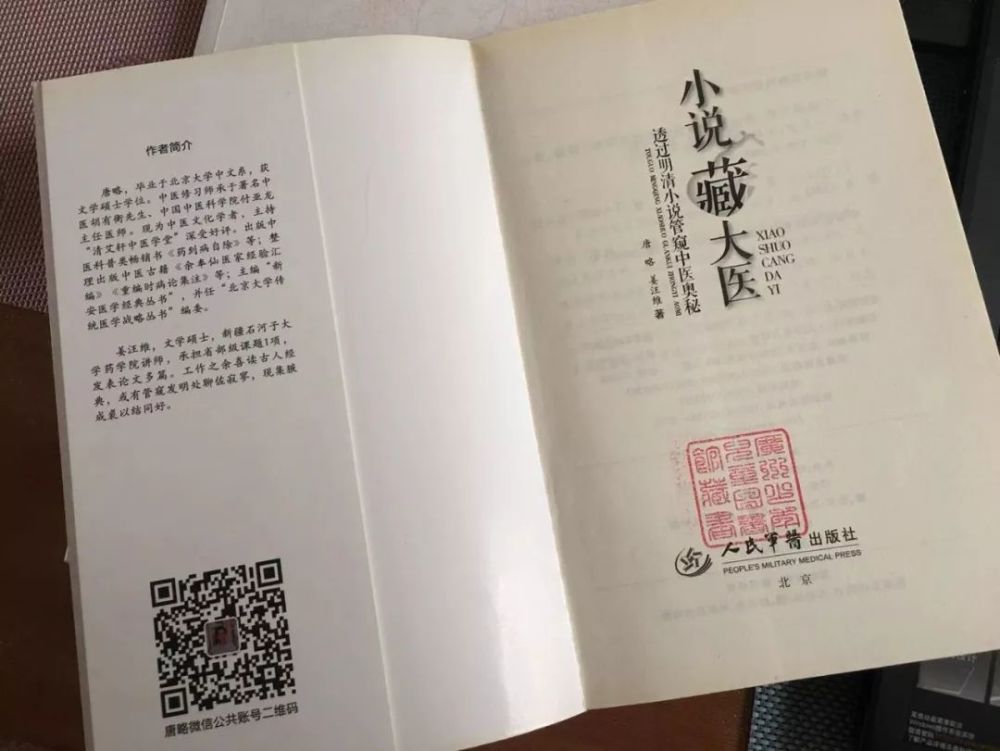 作者简介
唐略，毕业于北京大学中文系，获
文学硕士学位。中医修习师承于著名中
医胡有衡先生、中国中医科学院付亚龙
主任医师。现为中医文化学者，主持
“清艾轩中医学堂”深受好评。出版中
医科普类畅销书《药到病自除》等；整
理出版中医古籍《余奉仙医家经验汇
编》《重编时病论集注》等；主编“新
安医学经典丛书”，并任“北京大学传
统医学战略丛书”编委。
姜汪维，文学硕士，新疆石河子大
学药学院讲师，承担省部级课题1项，
发表论文多篇。工作之余喜读古人经
典，或有管窥发明处聊佐寂寥，现集腋
成裘以结同好。
唐略微信公共账号二维码
小说藏大医
XIAO
SHUO
CANG
DA
YI
透过明清小说管窥中医奥秘
TOUGUO MINGQING XIAOSHUO GUANKUI ZHONGYI AOMI
唐略 姜汪维 著
人民军医出版社
PEOPLE'S MILITARY MEDICAL PRESS
北京